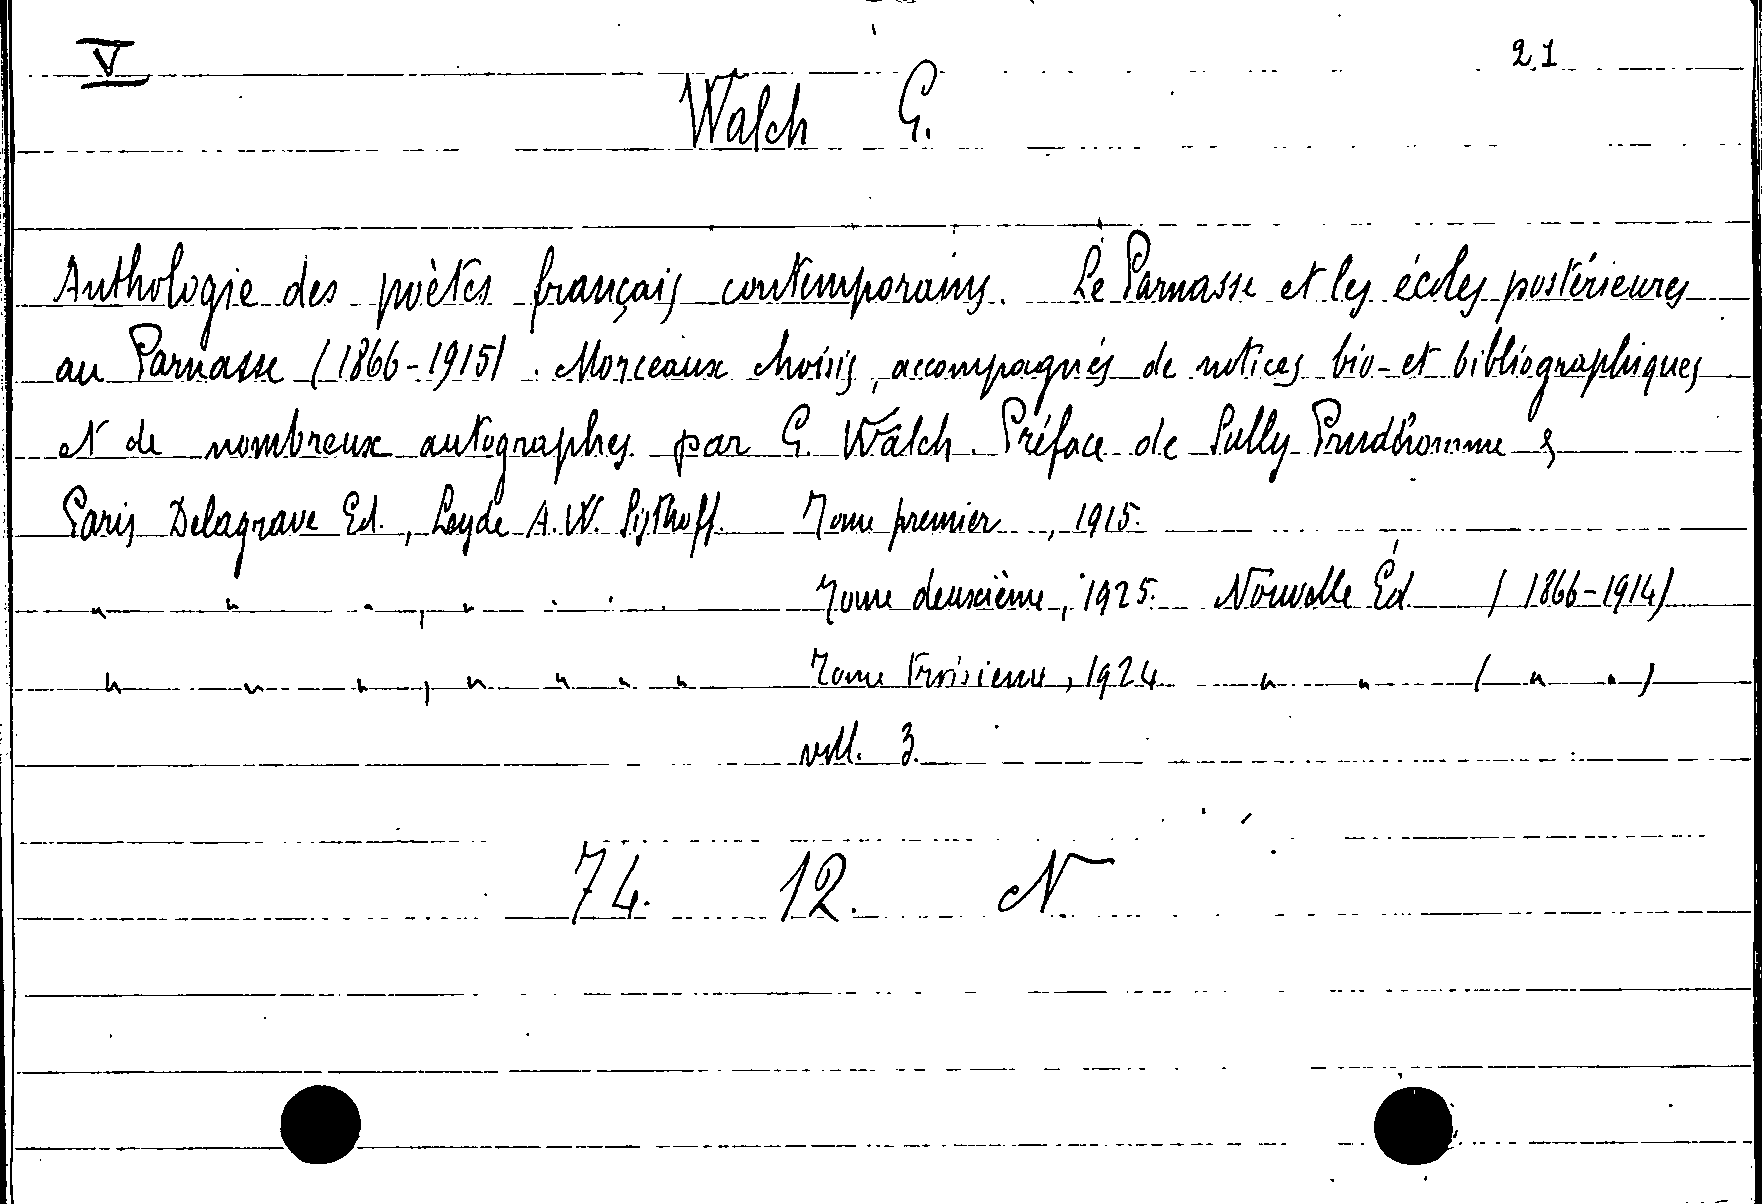 V 21
Walch G.
Anthologie des poètes français contemporains. Le Parnasse et les écoles postérieures
au Parnasse (1866-1915). Morceaux choisis, accompagnés de notices bio- et bibliographiques
et de nombreux autographes par G. Walch. Préface de Sully Prudhomme
Paris Delagrave Ed., Leyde A.W. Sijthoff. Tome premier, 1915.
" " " , " Tome deuxième, 1925. Nouvelle Éd. (1866-1914)
" " " , " " " " Tome troisieme, 1924 " " ( " " )
voll. 3.
74. 12. N.